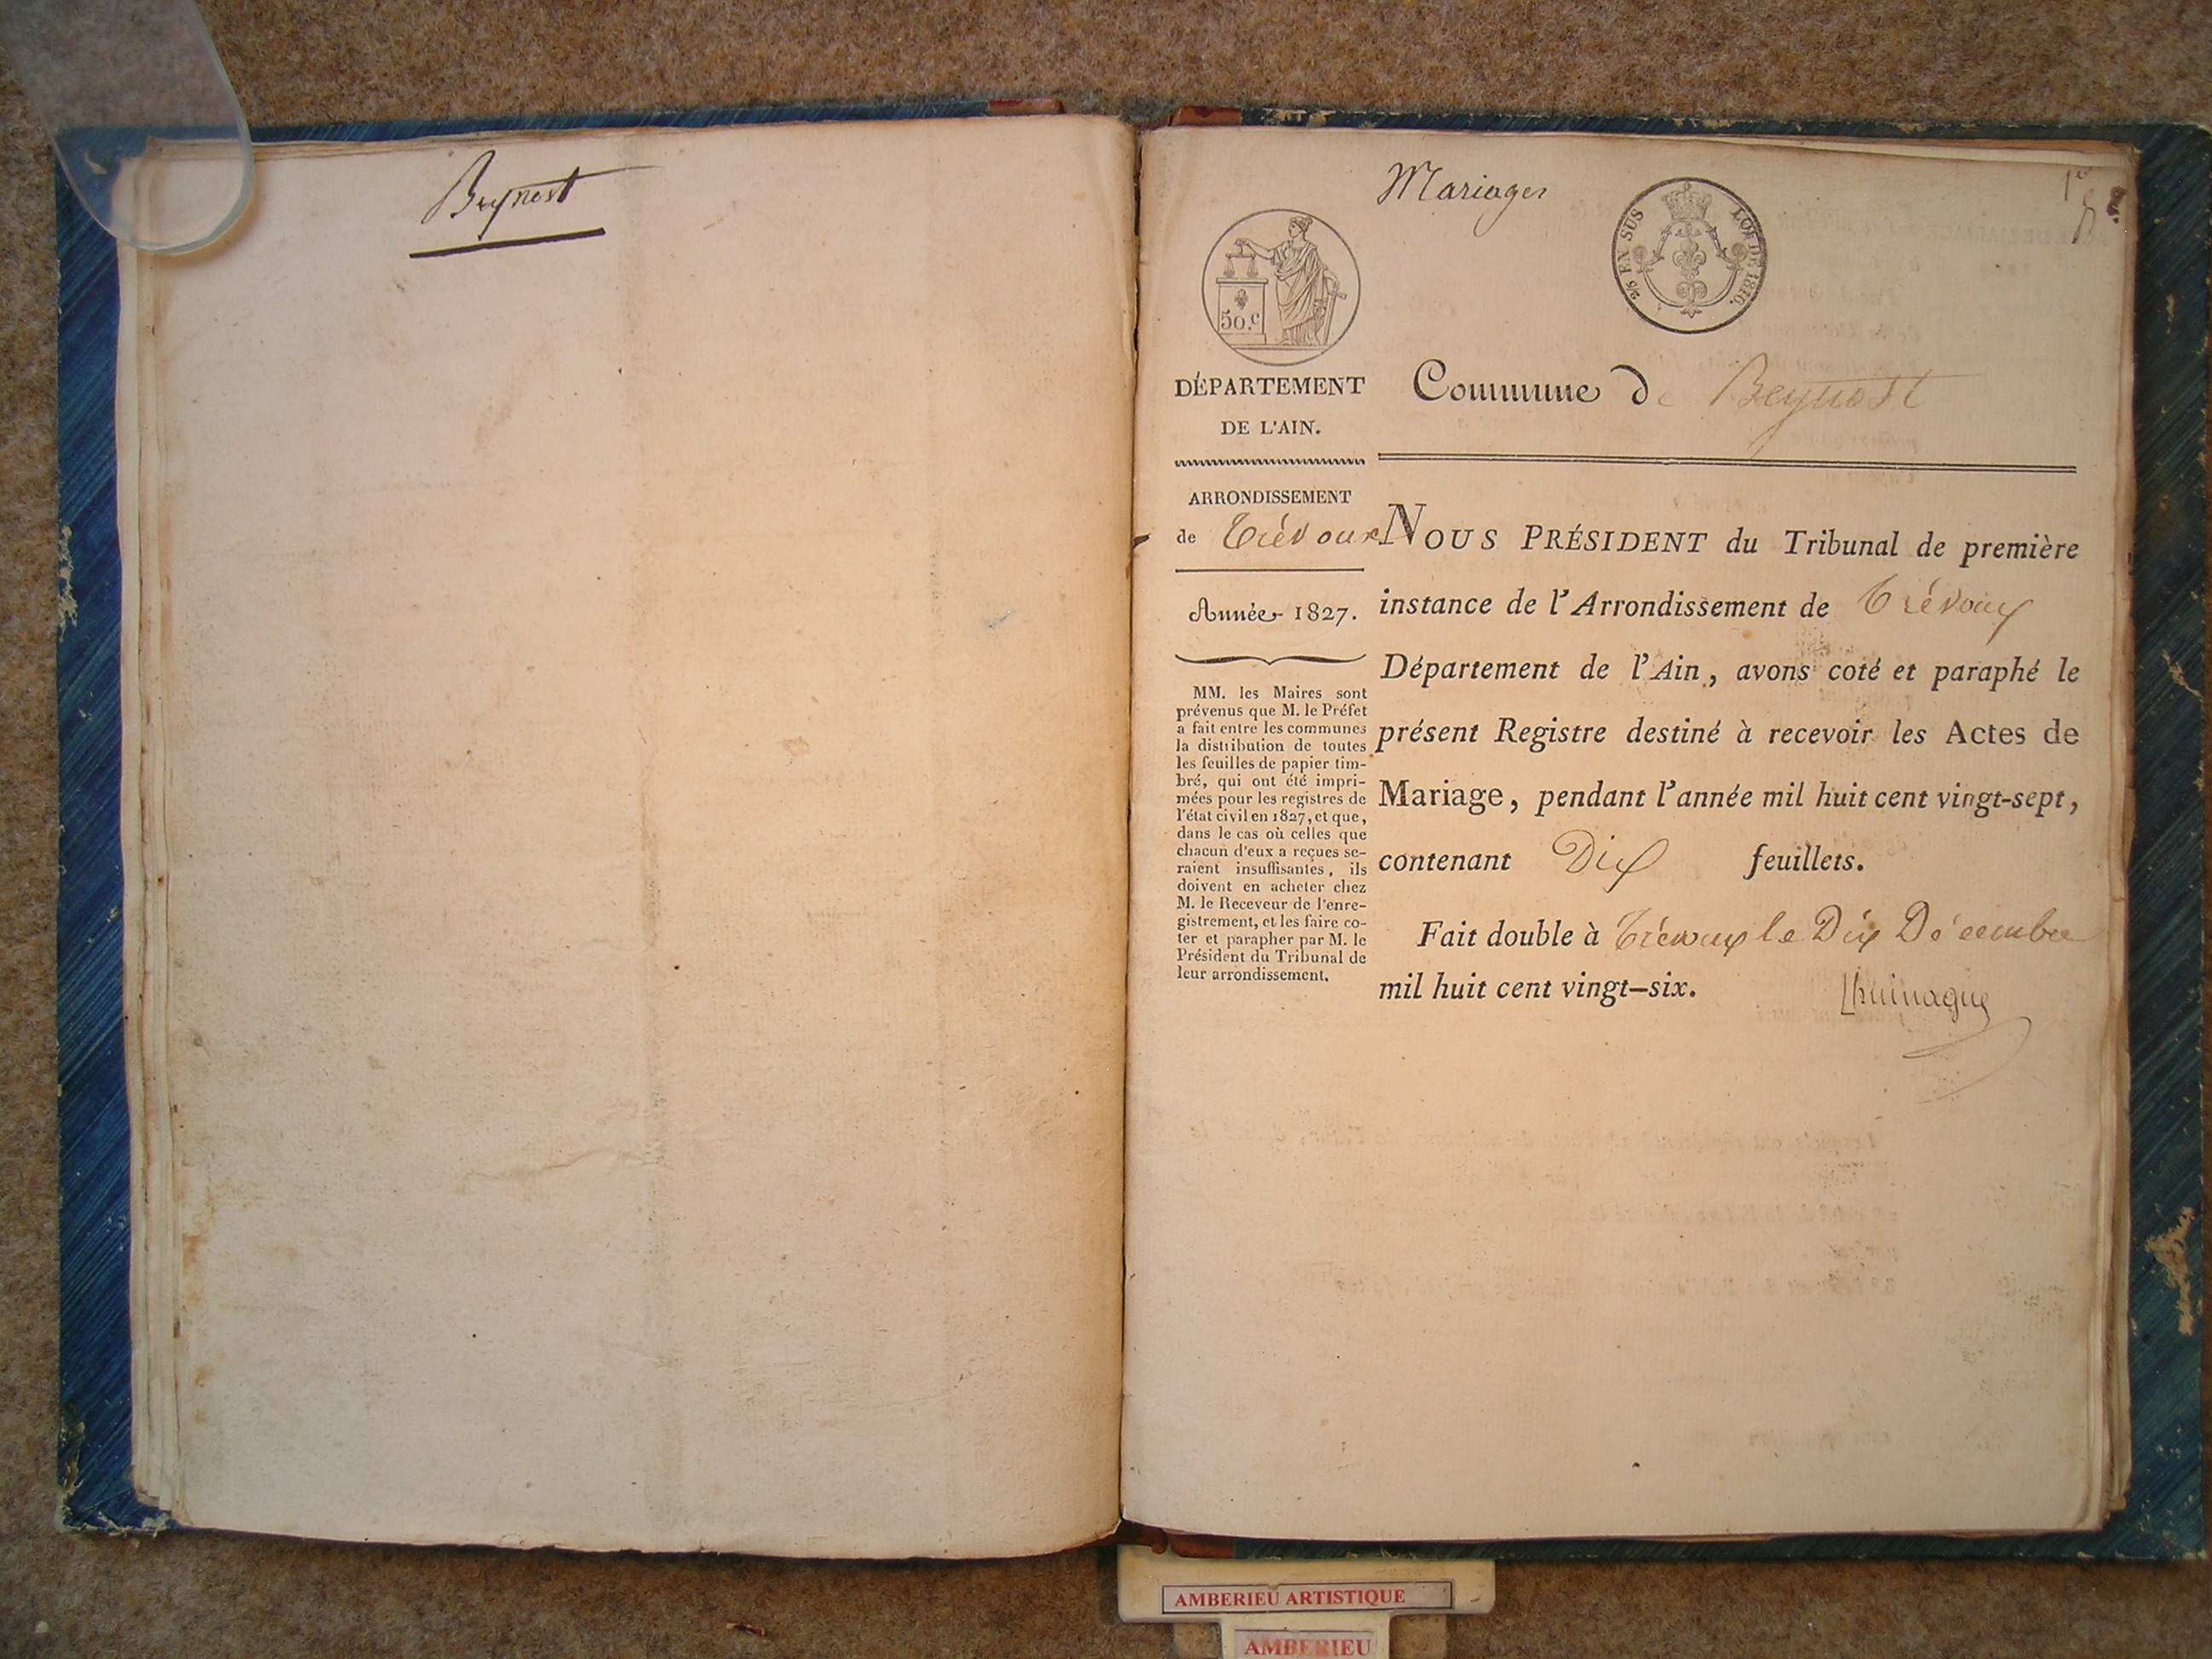 Beynost
Mariages
1er
50.c
5/6 EN SUS LOI DE 1816.
DÉPARTEMENT
DE L'AIN.
Commune de Beynost
ARRONDISSEMENT
de Trévoux
Année 1827.
MM. les Maires sont
prévenus que M. le Préfet
a fait entre les communes
la distribution de toutes
les feuilles de papier tim-
bré, qui ont été impri-
mées pour les registres de
l'état civil en 1827, et que,
dans le cas où celles que
chacun d'eux a reçues se-
raient insuffisantes, ils
doivent en acheter chez
M. le Receveur de l'enre-
gistrement, et les faire co-
ter et parapher par M. le
Président du Tribunal de
leur arrondissement.
NOUS PRÉSIDENT du Tribunal de première
instance de l'Arrondissement de Trévoux
Département de l'Ain, avons coté et paraphé le
présent Registre destiné à recevoir les Actes de
Mariage, pendant l'année mil huit cent vingt-sept,
contenant Dix feuillets.
Fait double à Trévoux le Dix Décembre
mil huit cent vingt-six.
AMBERIEU ARTISTIQUE
AMBERIEU